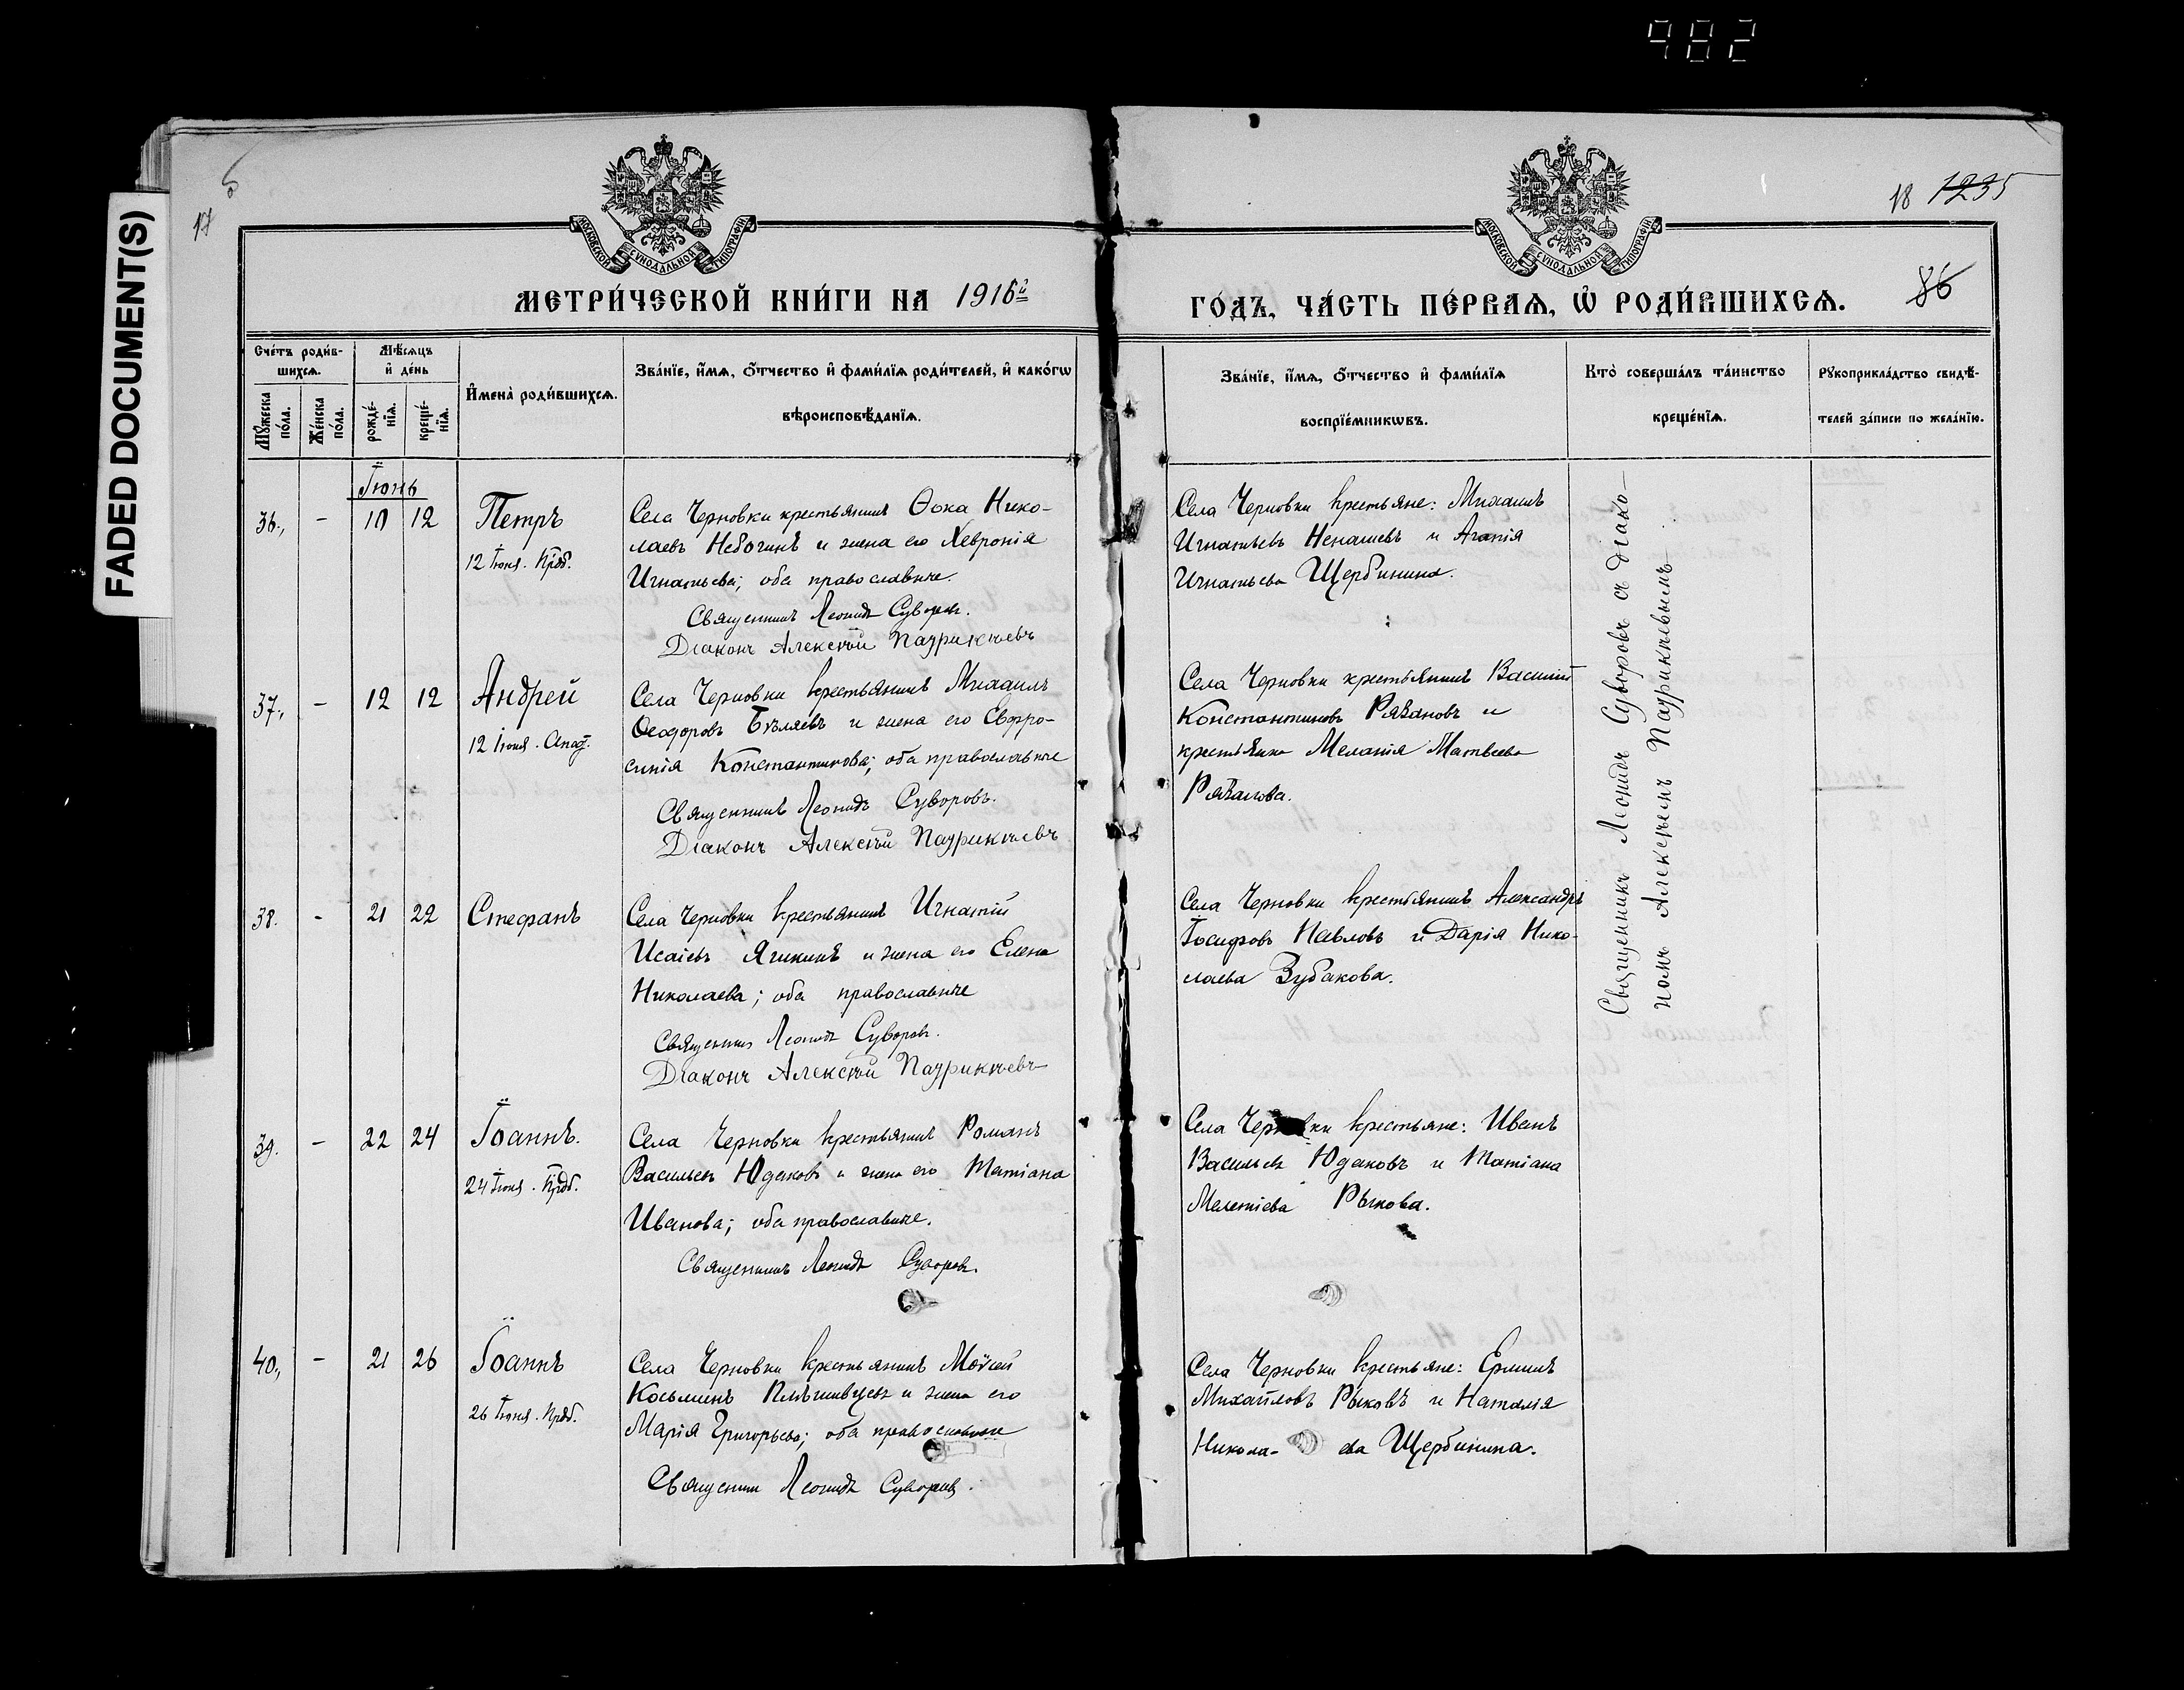 982
FADED DOCUMENT(S)
17
18 1235
86
МОСКОВСКОЙ СѴНОДАЛЬНОЙ ТИПОГРАФІИ
МОСКОВСКОЙ СѴНОДАЛЬНОЙ ТИПОГРАФІИ
МЕТРИ́ЧЕСКОЙ КНИ́ГИ НА 1916й
ГО́ДЪ, ЧА́СТЬ ПЕ́РВАѦ, Ѿ РОДИ́ВШИХСѦ.
Сче́тъ роди́в-
шихсѧ.
Мѣ́сѧцъ
и҆ де́нь
Мꙋ́жеска
по́ла.
Же́нска
по́ла.
рожде́-
нїѧ.
креще́-
нїѧ.
И҆мена̀ роди́вшихсѧ.
Зва́нїе, и҆́мѧ, ѻ҆́тчество и҆ фами́лїѧ роди́телей, и҆ како́гѡ
вѣроисповѣ́данїѧ.
Зва́нїе, и҆́мѧ, ѻ҆́тчество и҆ фами́лїѧ
воспрїе́мникѡвъ.
Кто̀ соверша́лъ та́инство
креще́нїѧ.
Рꙋкоприкла́дство свидѣ́-
телей за́писи по жела́нїю.
Іюнь
36., - 10 12 Петръ
12 Іюня. Прдб.
Села Черновки крестьянинъ Ѳока Нико-
лаевъ Небогинъ и жена его Хевронія
Игнатьева; оба православные.
Священникъ Леонидъ Суворовъ.
Діаконъ Алексѣй Патрикѣевъ
Села Черновки крестьяне: Михаилъ
Игнатьевъ Ненашевъ и Агапія
Игнатьева Щербинина.
37., - 12 12 Андрей
12 Іюня. Апост.
Села Черновки крестьянинъ Михаилъ
Ѳеодоровъ Бѣляевъ и жена его Евфро-
синія Константинова; оба православные
Священникъ Леонидъ Суворовъ.
Діаконъ Алексѣй Патрикѣевъ
Села Черновки крестьянинъ Василій
Константиновъ Рязановъ и
крестьянка Меланія Матвеева
Рязанова.
38. - 21 22 Стефанъ
Села Черновки крестьянинъ Игнатій
Исаіевъ Ягикинъ и жена его Елена
Николаева; оба православные
Священникъ Леонидъ Суворовъ.
Діаконъ Алексѣй Патрикѣевъ
Села Черновки крестьянинъ Александръ
Іосифовъ Павловъ и Дарія Нико-
лаева Зубакова.
39. - 22 24 Іоаннъ.
24 Іюня. Прдб.
Села Черновки крестьянинъ Романъ
Васильевъ Юдаковъ и жена его Татіана
Иванова; оба православные.
Священникъ Леонидъ Суворовъ.
Села Черновки крестьяне: Иванъ
Васильевъ Юдаковъ и Татіана
Мелетіева Рыкова.
40., - 21 26 Іоаннъ
26 Іюня. Прдб.
Села Черновки крестьянинъ Моѵсей
Косьминъ и жена его
Марія Григорьева; оба православные
Священникъ Леонидъ Суворовъ.
Села Черновки крестьяне: Ермилъ
Михайловъ Рыковъ и Наталія
Никола- ева Щербинина.
Священникъ Леонидъ Суворовъ съ діако-
номъ Алексѣемъ Патрикѣевымъ